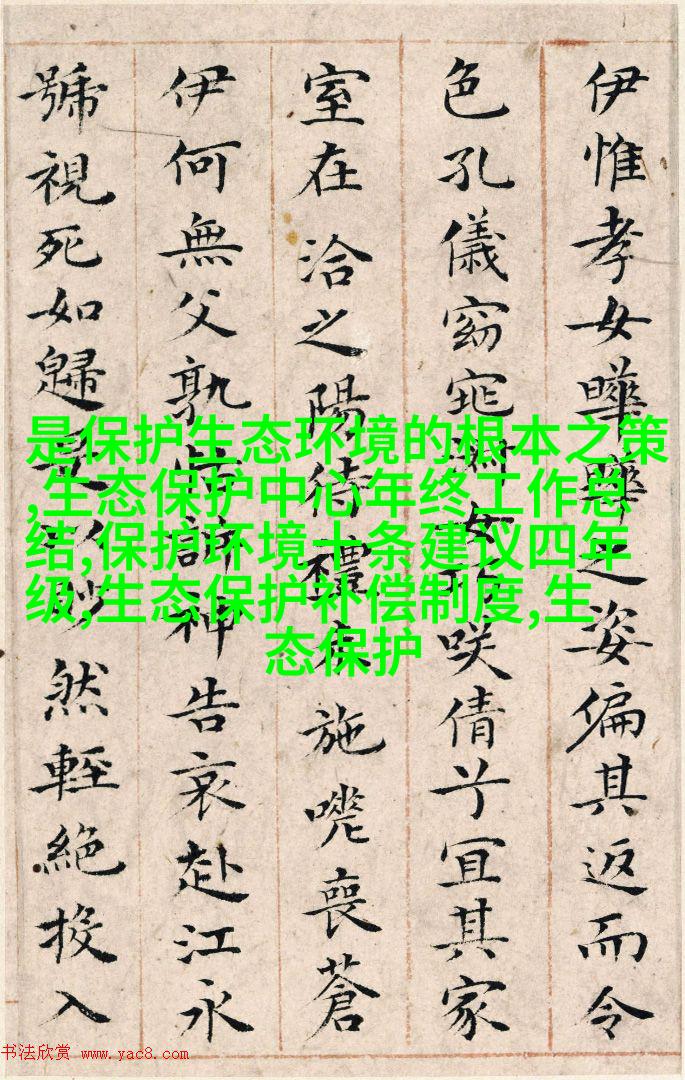 伊惟孝女曄曄之姿偏其返而令
色孔儀窈窕淑女巧咲倩兮宜其家
室在洽之陽待禮未施嗟喪蒼
伊何無父孰怙訴神告哀赴江永
號視死如歸是以眇然輕絕投入
是保护生态环境的根本之策
,生态保护中心年终工作总
结,保护环境十条建议四年
级,生态保护补偿制度,生
态保护
书法欣赏 www.yac8.com